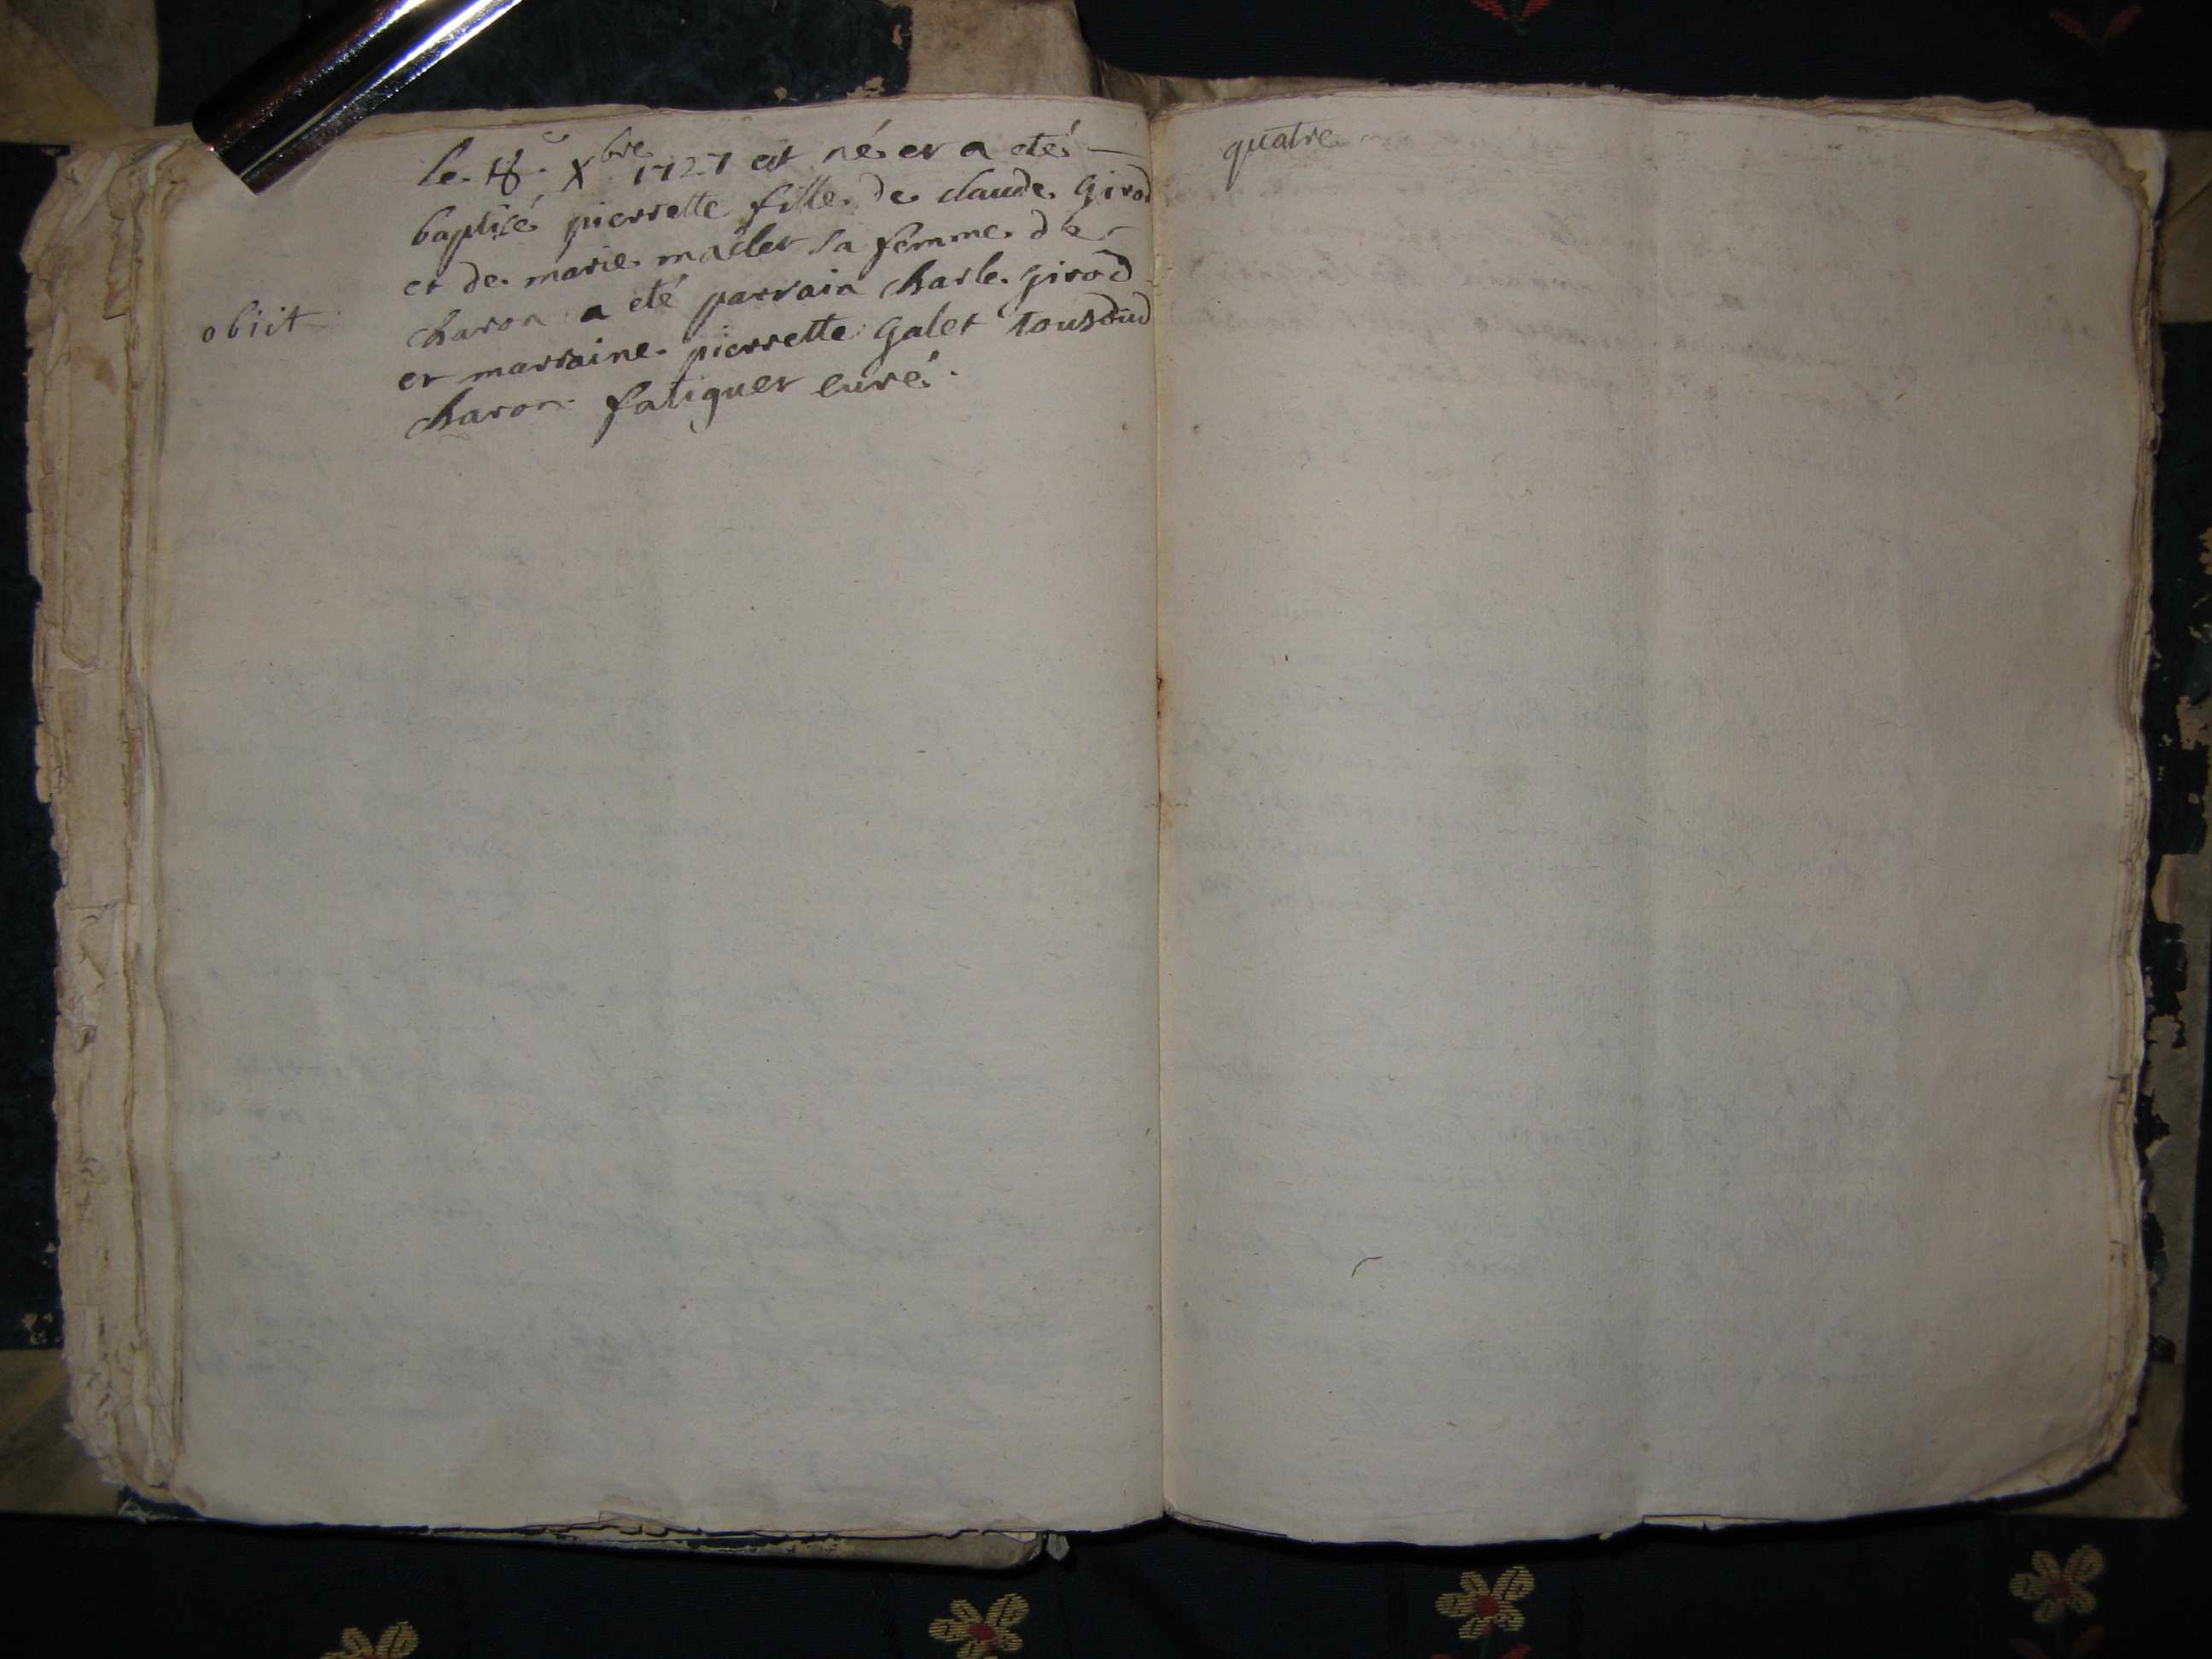 le 18e Xbre 1727 est né et a eté
baptisé pierrette fille de claude girod
et de marie mallet sa femme de
charon a eté parrain charle girod
obiit
et marraine pierrette galet tousdeud
charon fatiguet curé.
quatre